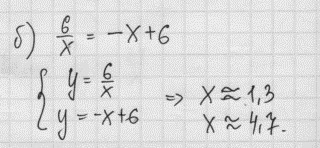 б) 6/x = -x+6
{ y = 6/x
y = -x+6 => x ≈ 1,3
x ≈ 4,7.